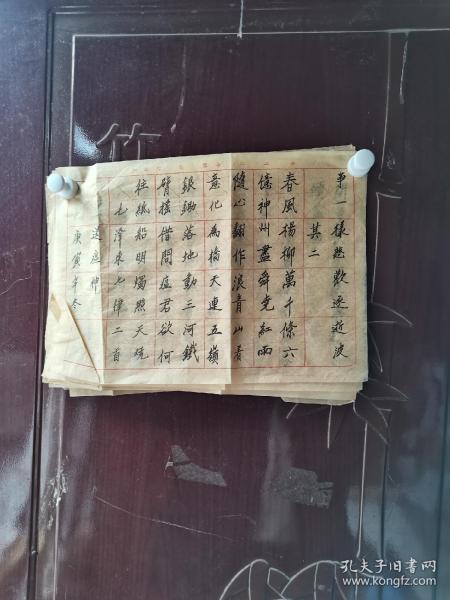 事一樣悲歡逐逝波
其二
春風楊柳萬千條六
憶神州盡舜堯紅雨
隨心翻作浪青山着
意化為橋天連五嶺
銀鋤落地動三河鐵
臂搖借問瘟君欲何
往紙船明燭照天燒
毛澤東七律二首
送瘟神
庚寅年冬
竹
孔夫子旧书网
www.kongfz.com